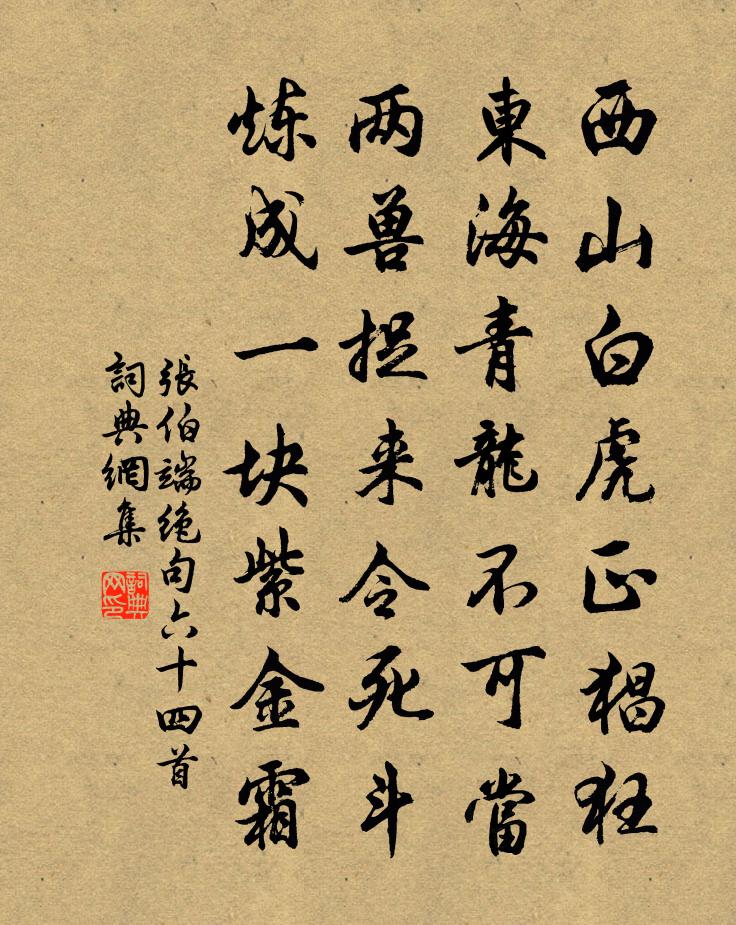 西山白虎正猖狂
東海青龍不可當
两兽捉来令死斗
炼成一块紫金霜
張伯端絶句六十四首
詞典網集
詞典网印